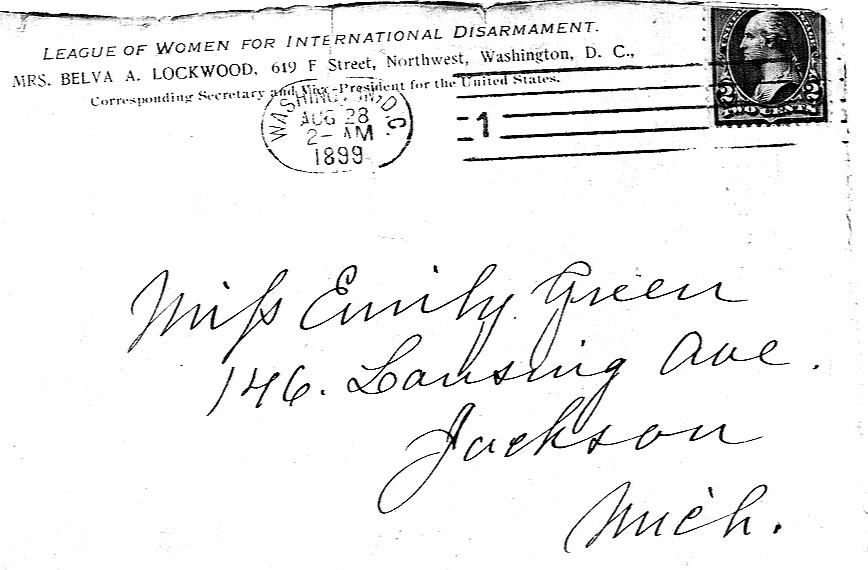 LEAGUE OF WOMEN FOR INTERNATIONAL DISARMAMENT.
MRS. BELVA A. LOCKWOOD, 619 F Street, Northwest, Washington, D. C.,
Corresponding Secretary and Vice-President for the United States.
WASHINGTON, D.C.
AUG 28
2- AM
1899
1
2 TWO CENTS 2
Miss Emily Green
146. Lansing Ave.
Jackson
Mich.